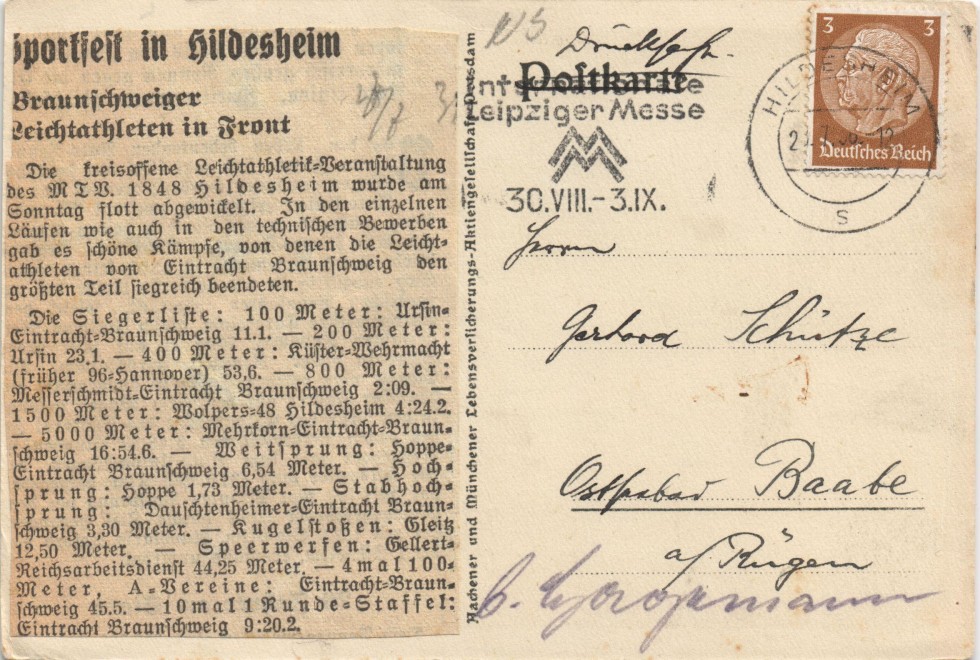 Sportfest in Hildesheim
Braunschweiger
Leichtathleten in Front
Die kreisoffene Leichtathletik-Veranstaltung
des MTV. 1848 Hildesheim wurde am
Sonntag flott abgewickelt. In den einzelnen
Läufen wie auch in den technischen Bewerben
gab es schöne Kämpfe, von denen die Leicht-
athleten von Eintracht Braunschweig den
größten Teil siegreich beendeten.
Die Siegerliste: 100 Meter: Ursin-
Eintracht-Braunschweig 11.1. — 200 Meter:
Ursin 23.1. — 400 Meter: Küster-Wehrmacht
(früher 96-Hannover) 53,6. — 800 Meter:
Messerschmidt-Eintracht Braunschweig 2:09. —
1500 Meter: Wolpers-48 Hildesheim 4:24.2.
— 5000 Meter: Mehrkorn-Eintracht-Braun-
schweig 16:54.6. — Weitsprung: Hoppe-
Eintracht Braunschweig 6,54 Meter. — Hoch-
sprung: Hoppe 1,73 Meter. — Stabhoch-
sprung: Dauschtenheimer-Eintracht Braun-
schweig 3,30 Meter. — Kugelstoßen: Gleitz
12,50 Meter. — Speerwerfen: Gellert-
Reichsarbeitsdienst 44,25 Meter. — 4mal100-
Meter, A-Vereine: Eintracht-Braun-
schweig 45.5. — 10mal1Runde-Staffel:
Eintracht Braunschweig 9:20.2.
Aachener und Münchener Lebensversicherungs-Aktiengesellschaft Potsdam
Drucksache
Postkarte
Leipziger Messe
30.VIII.-3.IX.
HILDESHEIM
S
3 3
Deutsches Reich
Herrn
Gerhard Schütze
Ostseebad Baabe
a/Rügen